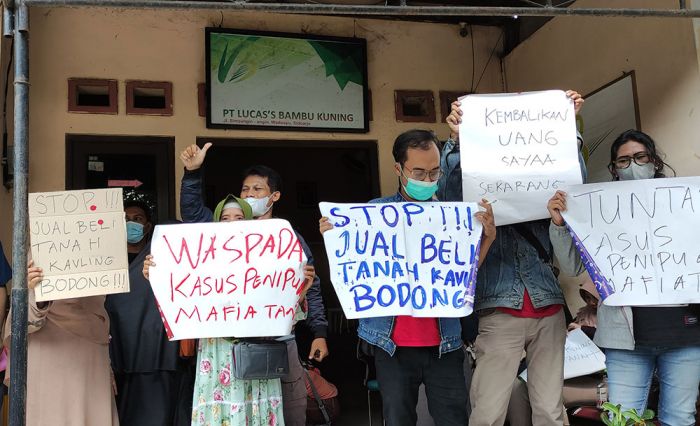 PT LUCAS'S BAMBU KUNING
STOP !!!
JUAL BELI
TANAH
KAVLING
BODONG!!!
WASPADA
KASUS PENIPU
MAFIA TAN
STOP !!!
JUAL BELI
TANAH KAVLING
BODONG!!
KEMBALIKAN
UANG
SAYAA
SEKARANG
TUNTA
KASUS
PENIPU
MAFIA T